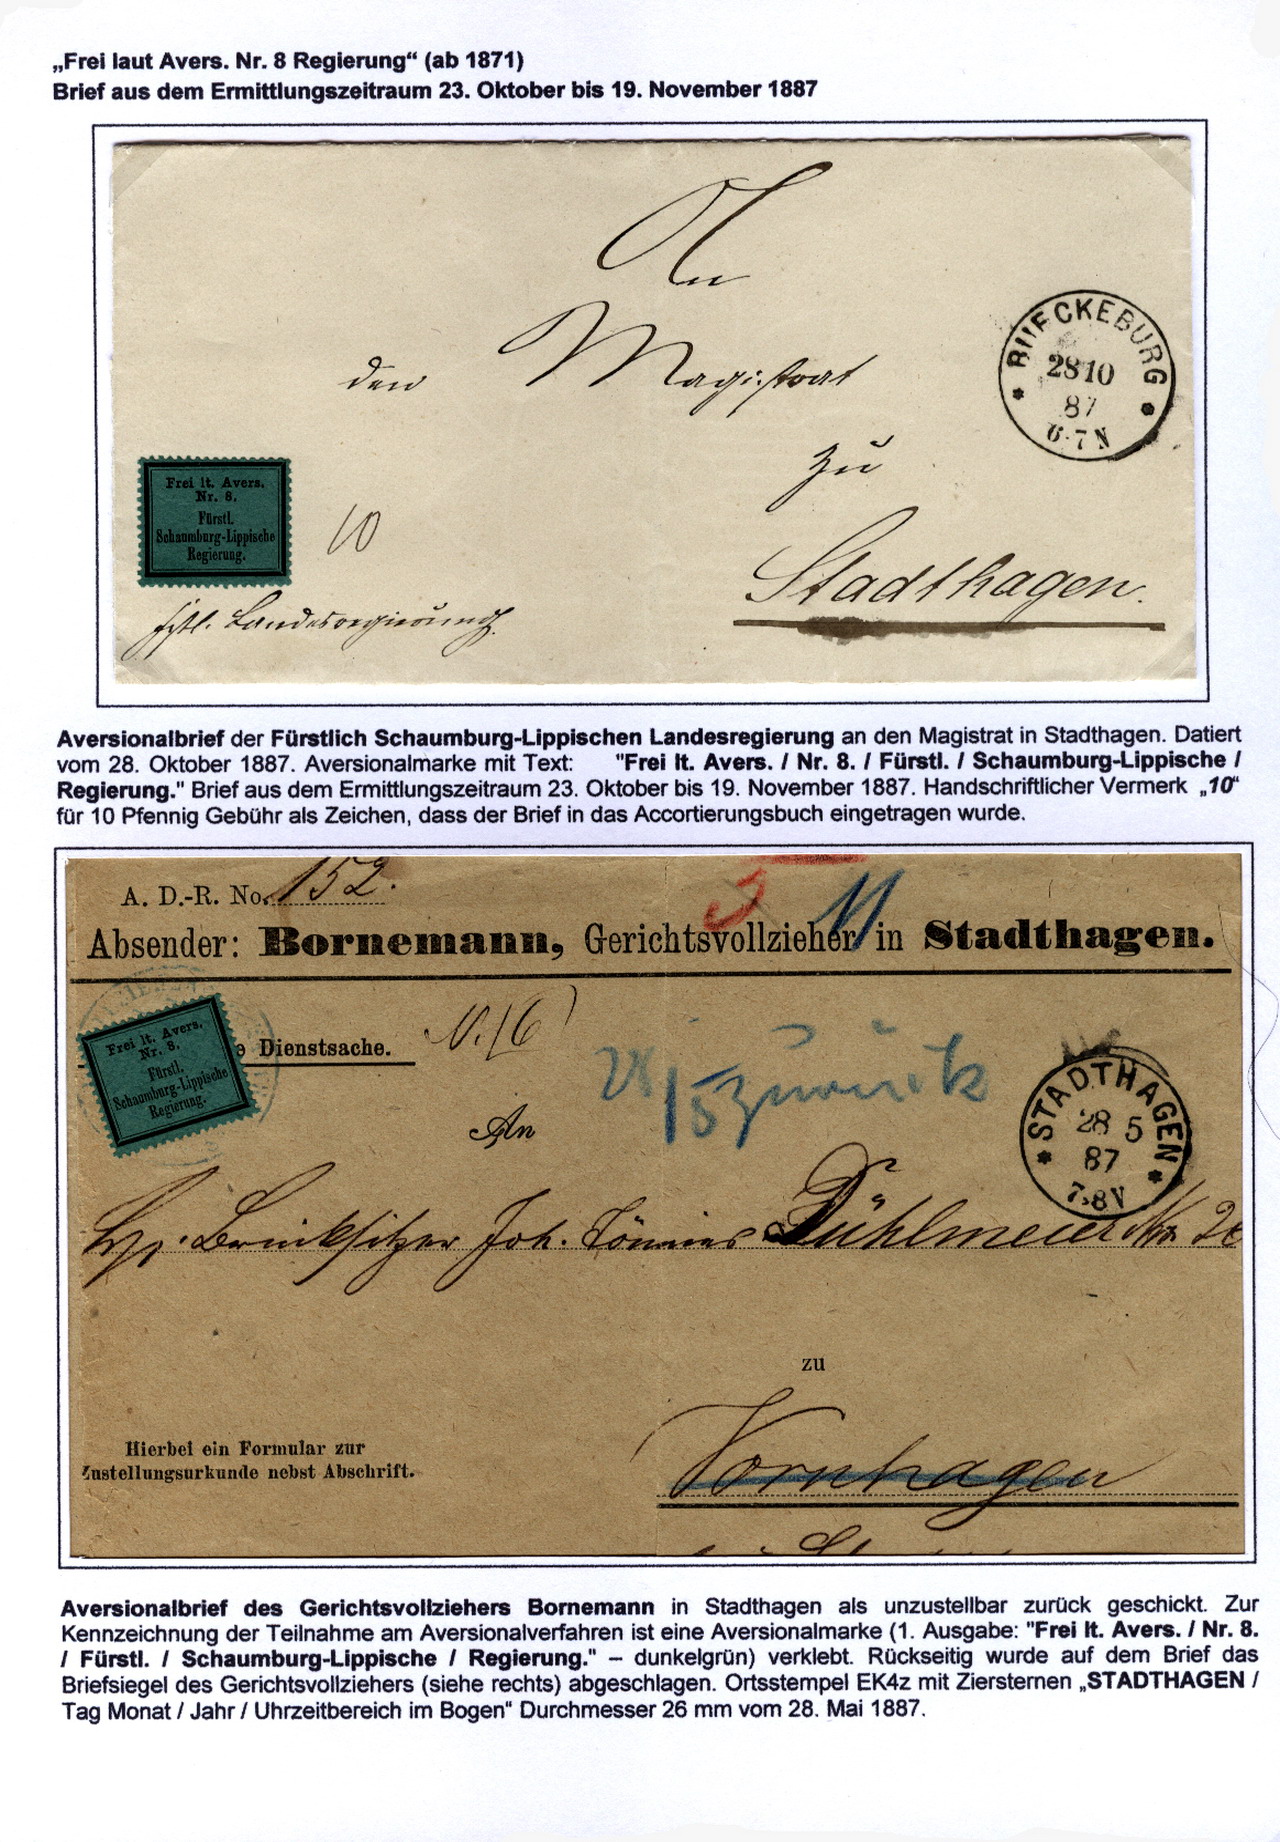 „Frei laut Avers. Nr. 8 Regierung“ (ab 1871)
Brief aus dem Ermittlungszeitraum 23. Oktober bis 19. November 1887
An
den Magistrat
zu
Stadthagen.
BUECKEBURG
28 10
87
6-7 N
Frei lt. Avers.
Nr. 8.
Fürstl.
Schaumburg-Lippische
Regierung.
10
Fstl. Landesregierung.
Aversionalbrief der Fürstlich Schaumburg-Lippischen Landesregierung an den Magistrat in Stadthagen. Datiert
vom 28. Oktober 1887. Aversionalmarke mit Text: "Frei lt. Avers. / Nr. 8. / Fürstl. / Schaumburg-Lippische /
Regierung." Brief aus dem Ermittlungszeitraum 23. Oktober bis 19. November 1887. Handschriftlicher Vermerk „10“
für 10 Pfennig Gebühr als Zeichen, dass der Brief in das Accortierungsbuch eingetragen wurde.
A. D.-R. No. 152.
5 11
Absender: Bornemann, Gerichtsvollzieher in Stadthagen.
Frei lt. Avers.
Nr. 8.
Fürstl.
Schaumburg-Lippische
Regierung.
e Dienstsache.
28/5 zurück
STADTHAGEN
28 5
87
7-8 V
An
Brinksitzer Joh. Tönnies Dühlmeier No.
zu
Vornhagen
Hierbei ein Formular zur
Zustellungsurkunde nebst Abschrift.
Aversionalbrief des Gerichtsvollziehers Bornemann in Stadthagen als unzustellbar zurück geschickt. Zur
Kennzeichnung der Teilnahme am Aversionalverfahren ist eine Aversionalmarke (1. Ausgabe: "Frei lt. Avers. / Nr. 8.
/ Fürstl. / Schaumburg-Lippische / Regierung." – dunkelgrün) verklebt. Rückseitig wurde auf dem Brief das
Briefsiegel des Gerichtsvollziehers (siehe rechts) abgeschlagen. Ortsstempel EK4z mit Ziersternen „STADTHAGEN /
Tag Monat / Jahr / Uhrzeitbereich im Bogen“ Durchmesser 26 mm vom 28. Mai 1887.